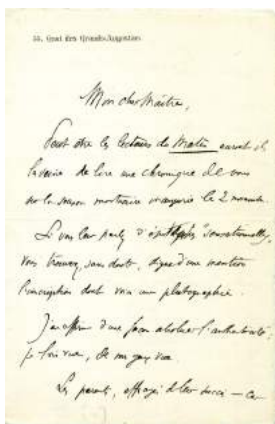 55, Quai des Grands-Augustins.
Mon cher Maître,
Peut être les lecteurs du Matin auront ils
la de lire une chronique de vous
sur la maison mortuaire le 2 novembre.
Si vous leur parlez d'épitaphes sensationnelles,
vous trouverez, sans doute, digne d'une mention
l'inscription dont voici une photographie.
J'affirme d'une façon absolue l'authenticité :
je l'ai vue, de mes yeux vue
Les parents, effrayés de leur succès — car